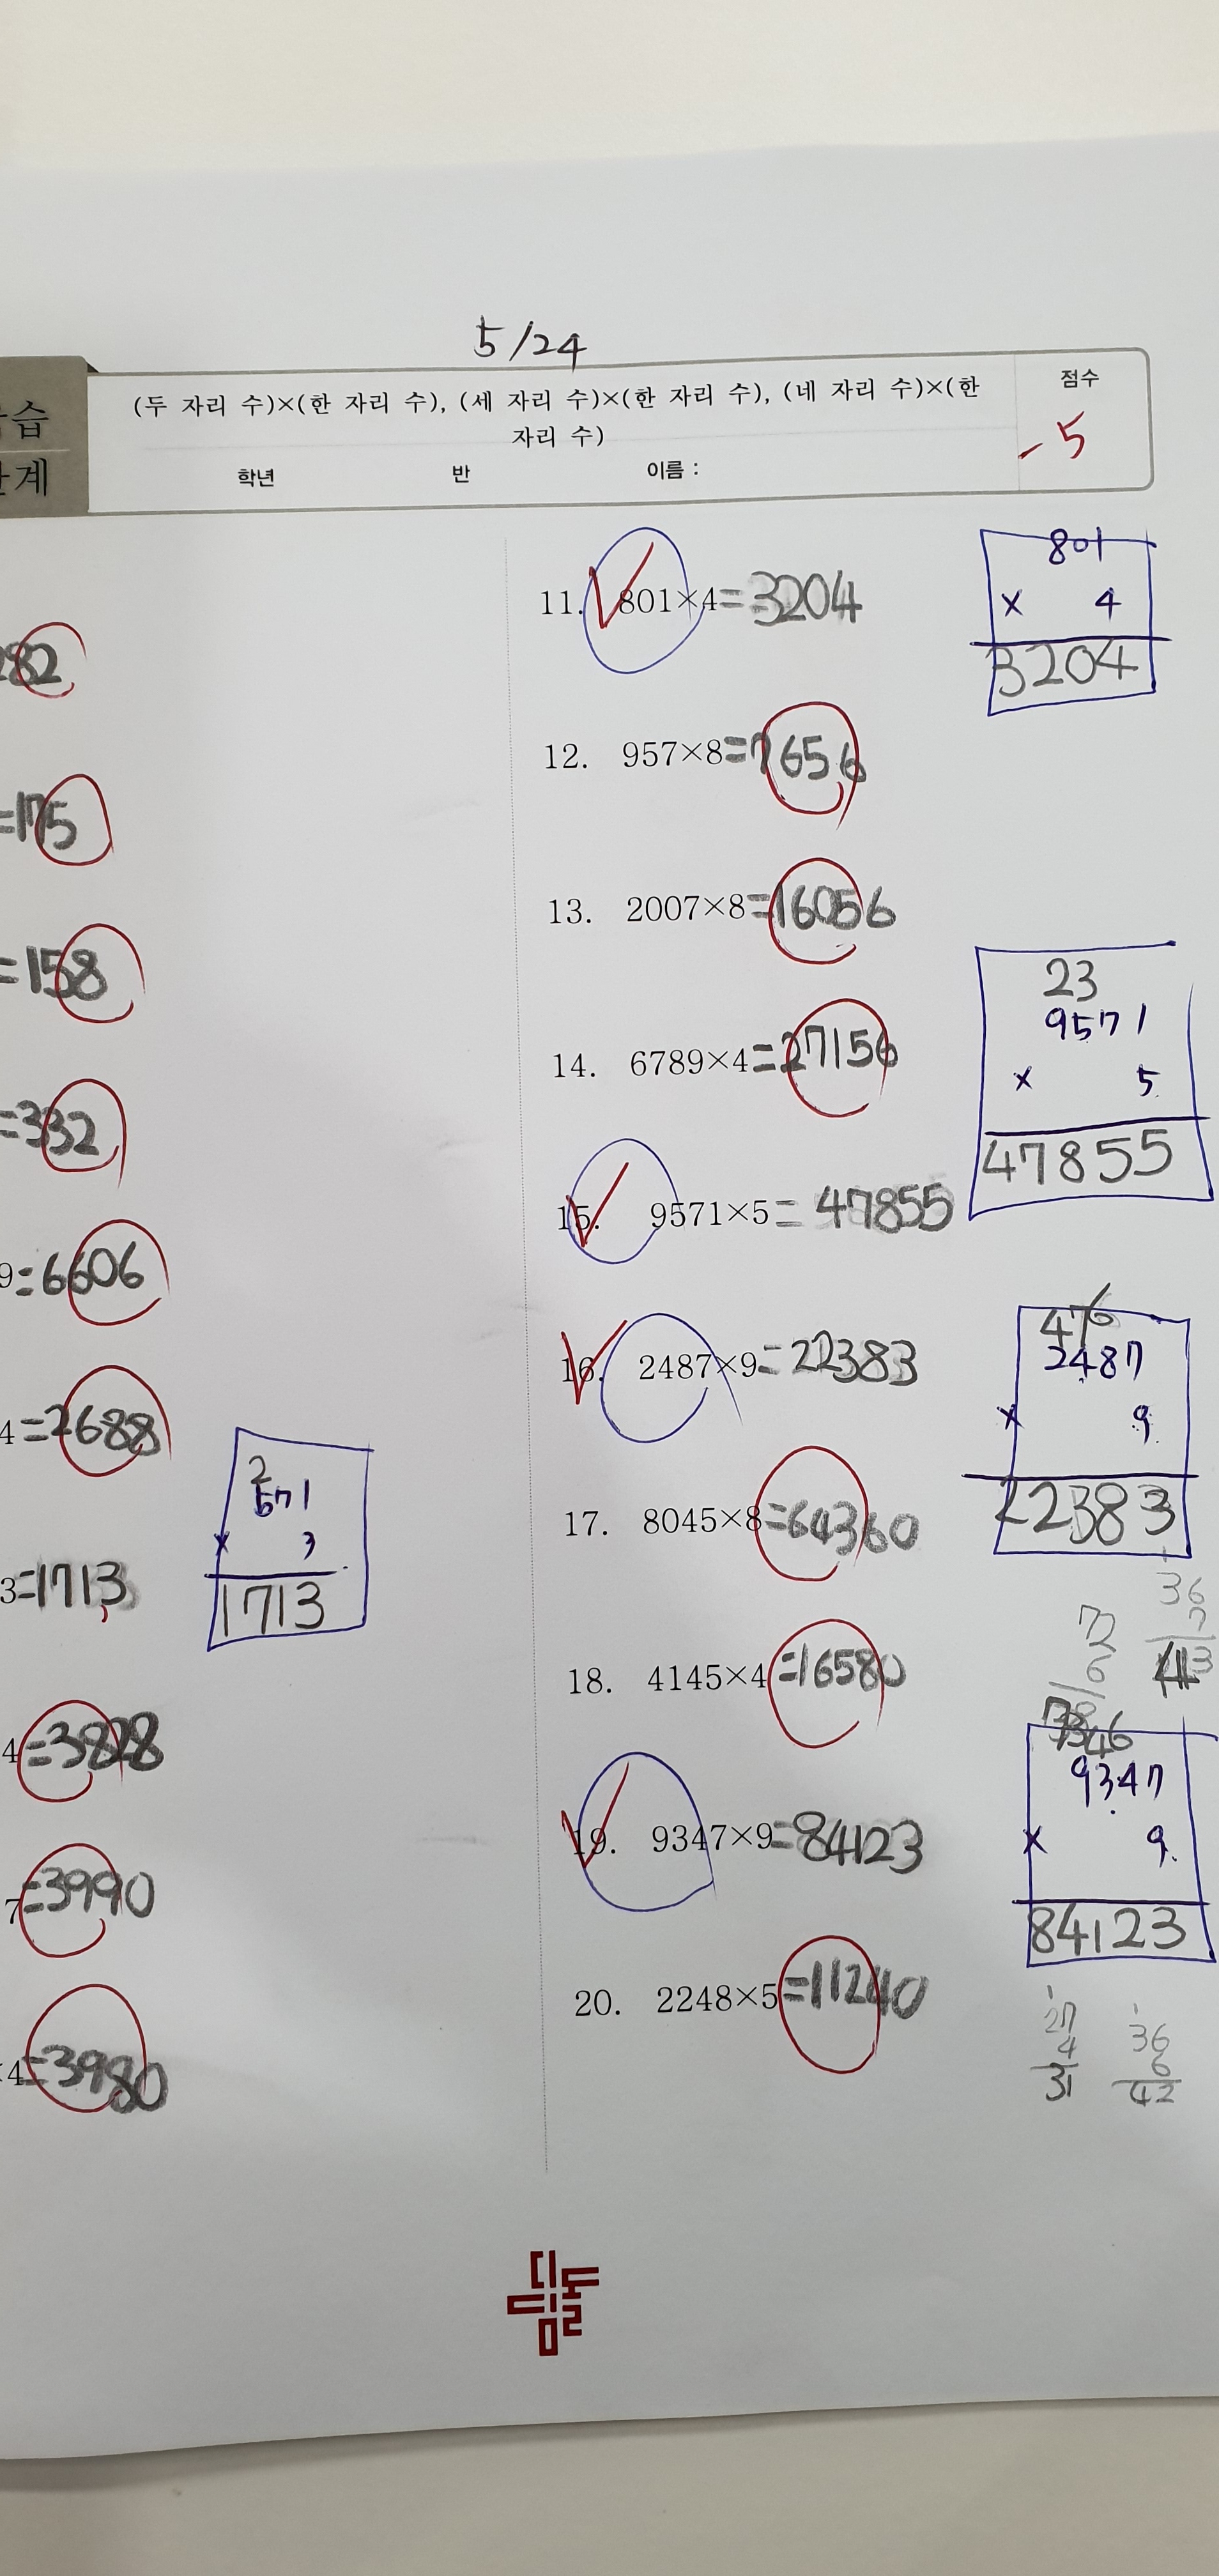 5/24
습
계
(두 자리 수)×(한 자리 수), (세 자리 수)×(한 자리 수), (네 자리 수)×(한
자리 수)
학년 반 이름 :
점수
-5
282
=175
=158
=332
9=6606
4=2688
3=1713
2
571
× 3
1713
4=3828
7=3990
×4=3980
11. 801×4=3204
801
× 4
3204
12. 957×8=7656
13. 2007×8=16056
14. 6789×4=27156
15. 9571×5=47855
23
9571
× 5
47855
16. 2487×9=22383
476
2487
× 9
22383
17. 8045×8=64360
36
7
43
72
6
78
18. 4145×4=16580
19. 9347×9=84123
346
9347
× 9
84123
20. 2248×5=11240
1
27
4
31
1
36
6
42
디딤돌